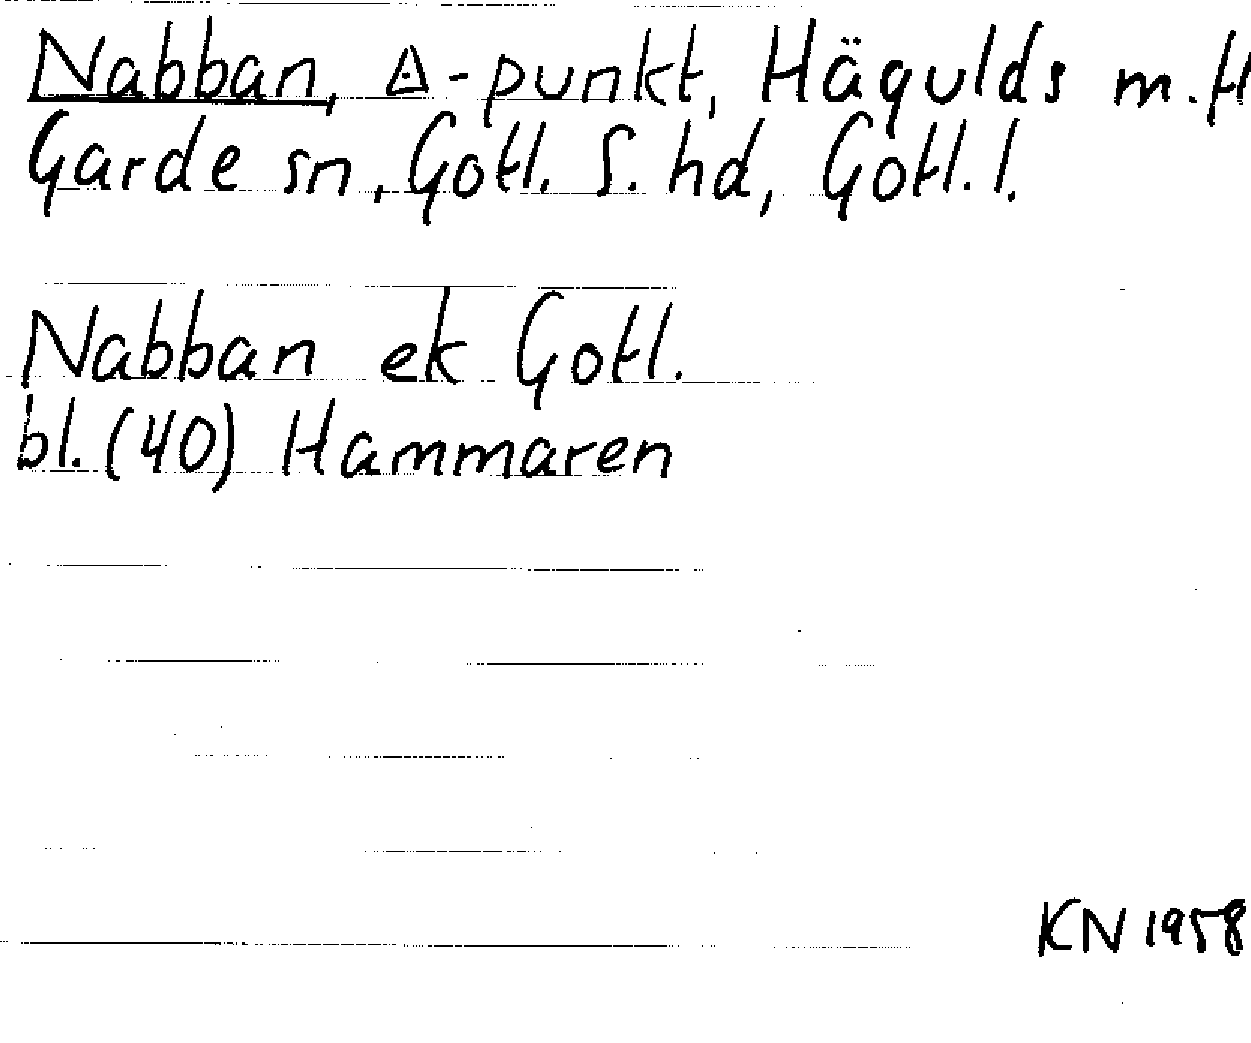 Nabban, △-punkt, Hägulds m.fl
Garde sn, Gotl. S. hd, Gotl. l.
Nabban ek Gotl.
bl. (40) Hammaren
KN 1958